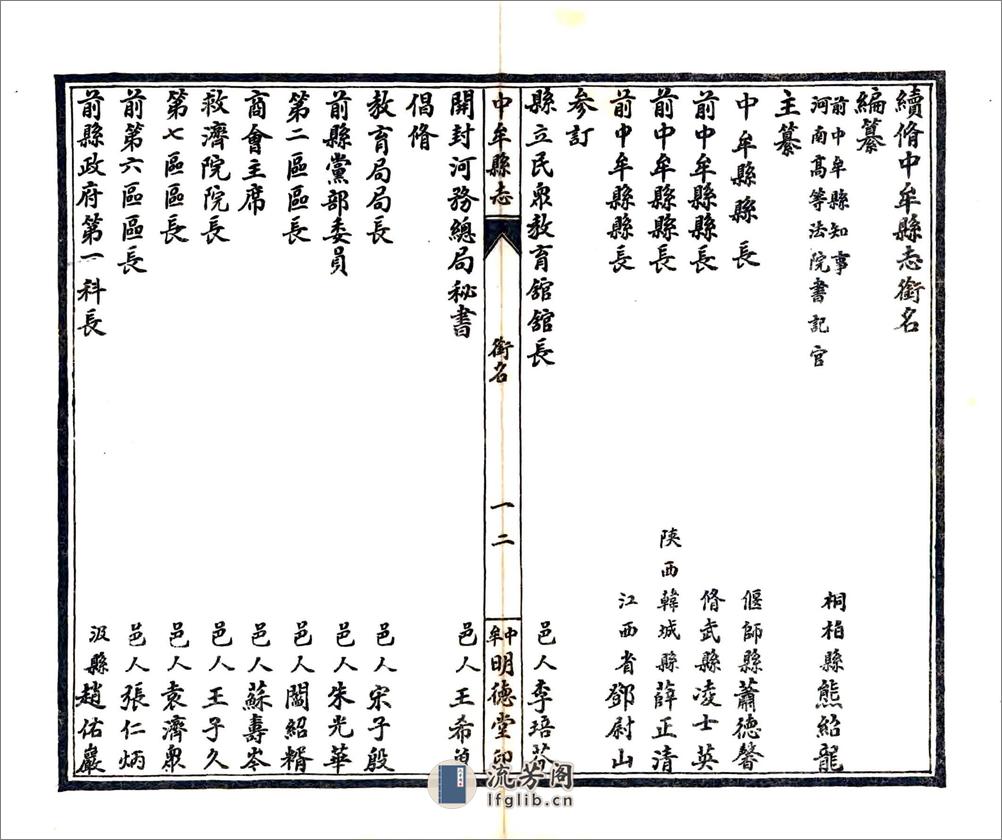 續脩中牟縣志銜名
編纂
前中牟縣知事
河南高等法院書記官 桐柏縣熊紹龍
主纂
中牟縣縣長 偃師縣蕭德馨
前中牟縣縣長 脩武縣凌士英
前中牟縣縣長 陝西韓城縣薛正清
前中牟縣縣長 江西省鄧尉山
參訂
縣立民衆教育舘舘長 邑人李培
中牟縣志 銜名 一二 中牟明德堂印
開封河務總局秘書 邑人王希
倡脩
教育局局長 邑人宋子殷
前縣黨部委員 邑人朱光華
第二區區長 邑人閻紹
商會主席 邑人蘇壽岑
救濟院院長 邑人王子久
第七區區長 邑人袁濟衆
前第六區區長 邑人張仁炳
前縣政府第一科長 汲縣趙佑巖
流芳阁
lfglib.cn